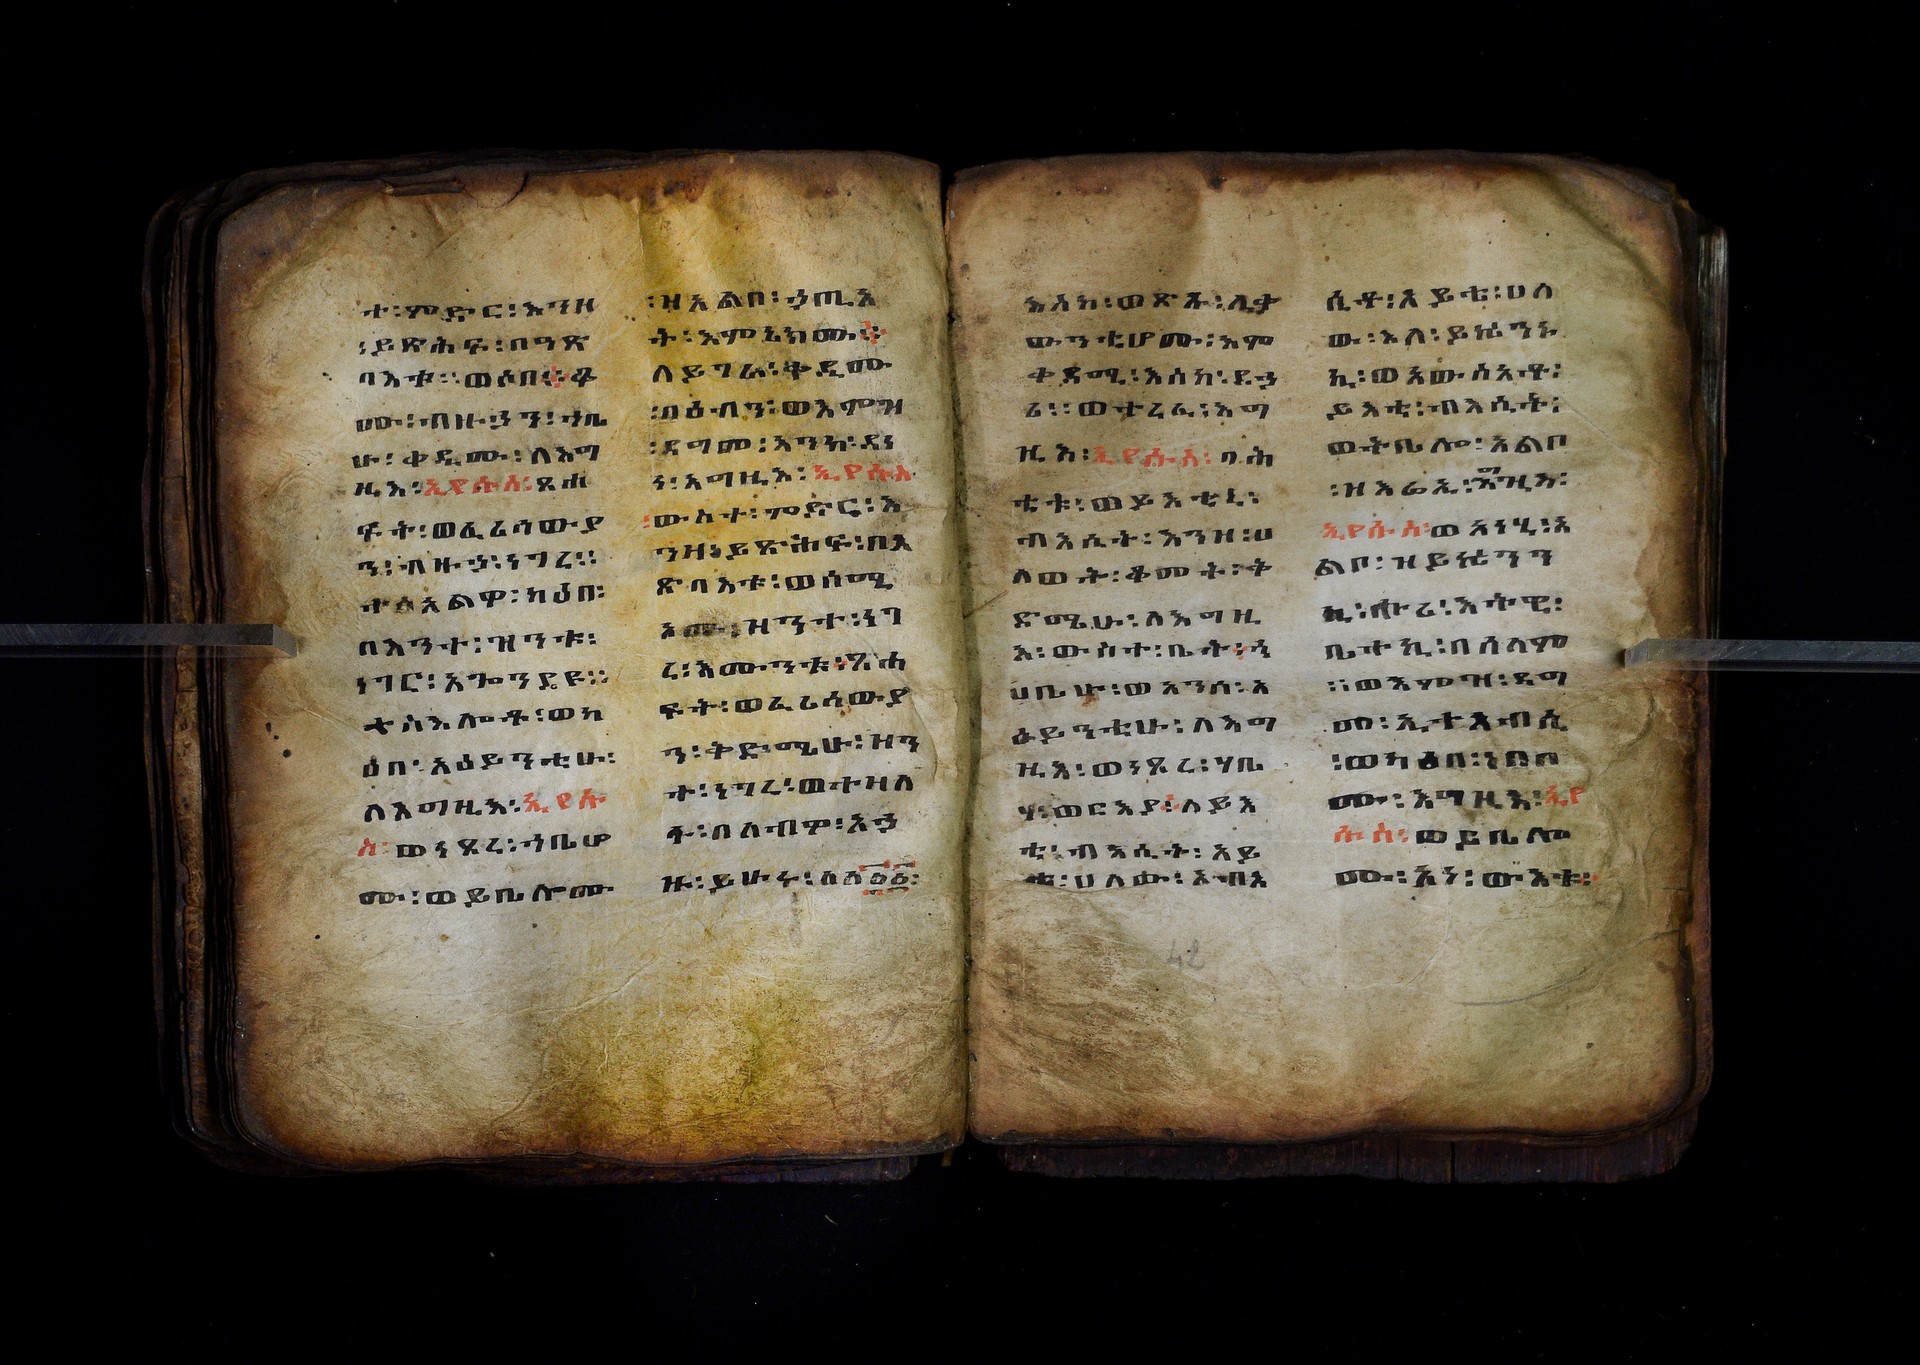 ተ፡ምድር፡እንዘ
፡ይጽሕፍ፡በዓጽ
ባእቱ።ወሶበ፡ቆ
ሙ፡ብዙኃን፡ኀቤ
ሁ፡ቀዲሙ፡ለእግ
ዚእ፡ኢየሱስ፡ጸሐ
ፍት፡ወፈሪሳውያ
ን፡ብዙኃ፡ነግረ።
ተስእልዋ፡ካዕበ፡
በእንተ፡ዝንቱ፡
ነገር፡እግንደዩ።
ተስእሎቶ፡ወካ
ዕበ፡አዕይንቲሁ፡
ለእግዚእ፡ኢየሱ
ስ፡ወነጸረ፡ኀቤሆ
ሙ፡ወይቤሎሙ
፡ዝአልቦ፡ኃጢአ
ት፡እምኔክሙ።
ለይግረ፡ቅዲሙ
፡በዕብን፡ወእምዝ
፡ዳግመ፡አንከ፡ደነ
ነ፡እግዚእ፡ኢየሱስ
፡ውስተ፡ምድር፡እ
ንዘ፡ይጽሕፍ፡በአ
ጽባእቱ፡ወሰሚ
ኦሙ፡ዝንተ፡ነገ
ረ፡እሙንቱ፡ጸሐ
ፍት፡ወፈሪሳውያ
ን፡ቅድሜሁ፡ዝን
ተ፡ነግረ፡ወተዛለ
ፉ፡በልብዎ፡አኃ
ዙ፡ይሁሩ፡፩፩፡
እስከ፡ወጽኡ፡ሊቃ
ውንቲሆሙ፡እም
ቀዳሚ፡እስከ፡ደኃ
ሪ።ወተረፈ፡እግ
ዚእ፡ኢየሱስ፡ባሕ
ቲቱ፡ወይእቲኒ፡
ብእሲት፡እንዘ፡ሀ
ለወት፡ቆመት፡ቅ
ድሜሁ፡ለእግዚ
እ፡ውስተ፡ቤት፡ኀ
ሀቤሁ፡ወአንሰ፡አ
ዕይንቲሁ፡ለእግ
ዚእ፡ወነጸረ፡ሃቤ
ሃ፡ወርእያ፡ለይእ
ቲ፡ብእሲት፡አይ
ቴ፡ሀለው፡እብእ
ሲቶ፡አይቴ፡ሀለ
ው፡እለ፡ይኴንኑ
ኪ፡ወአውሰአቶ፡
ይእቲ፡ብእሲት፡
ወትቤሎ፡አልቦ
፡ዝእሬኢ፡እግዚእ፡
ኢየሱስ፡ወአነሂ፡አ
ልቦ፡ዝይኴንን
ኪ፡ሑሪ፡እትዊ፡
ቤተኪ፡በሰላም
።ወእምዝ፡ዳግ
መ፡ኢተአብሲ
፡ወካዕበ፡ነበቦ
ሙ፡እግዚእ፡ኢየ
ሱስ፡ወይቤሎ
ሙ፡አነ፡ውእቱ፡
42